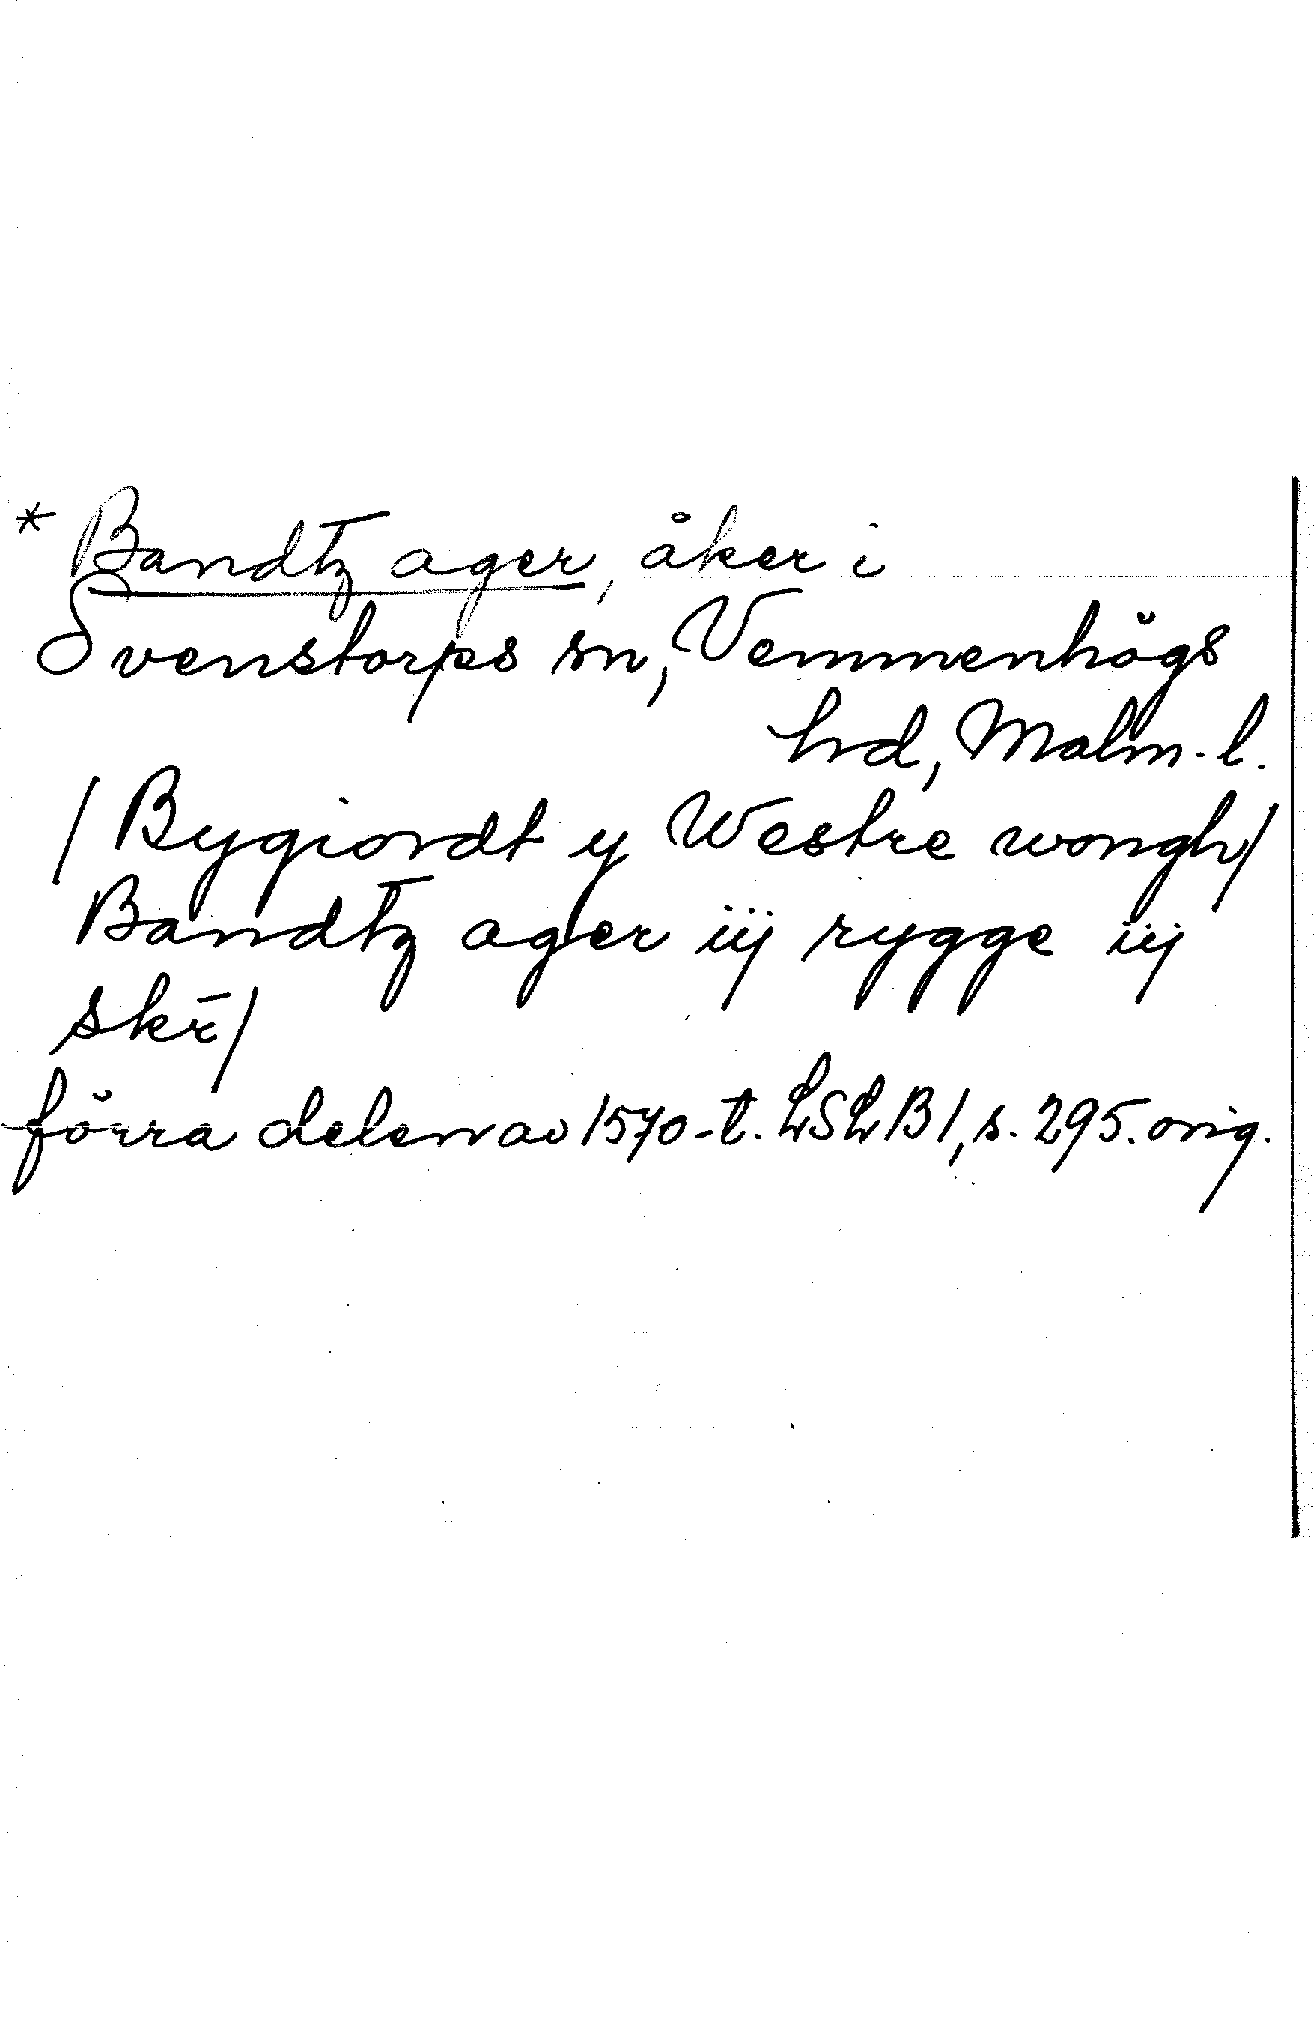 * Bandtz ager, åker i
Svenstorps sn, Vemmenhögs
hd, Malm. l.
/Bygiordt y Westre wongh/
Bandtz ager iij rygge iij
skr̄/
förra delen av 1570-t. LSLB 1, s. 295. orig.